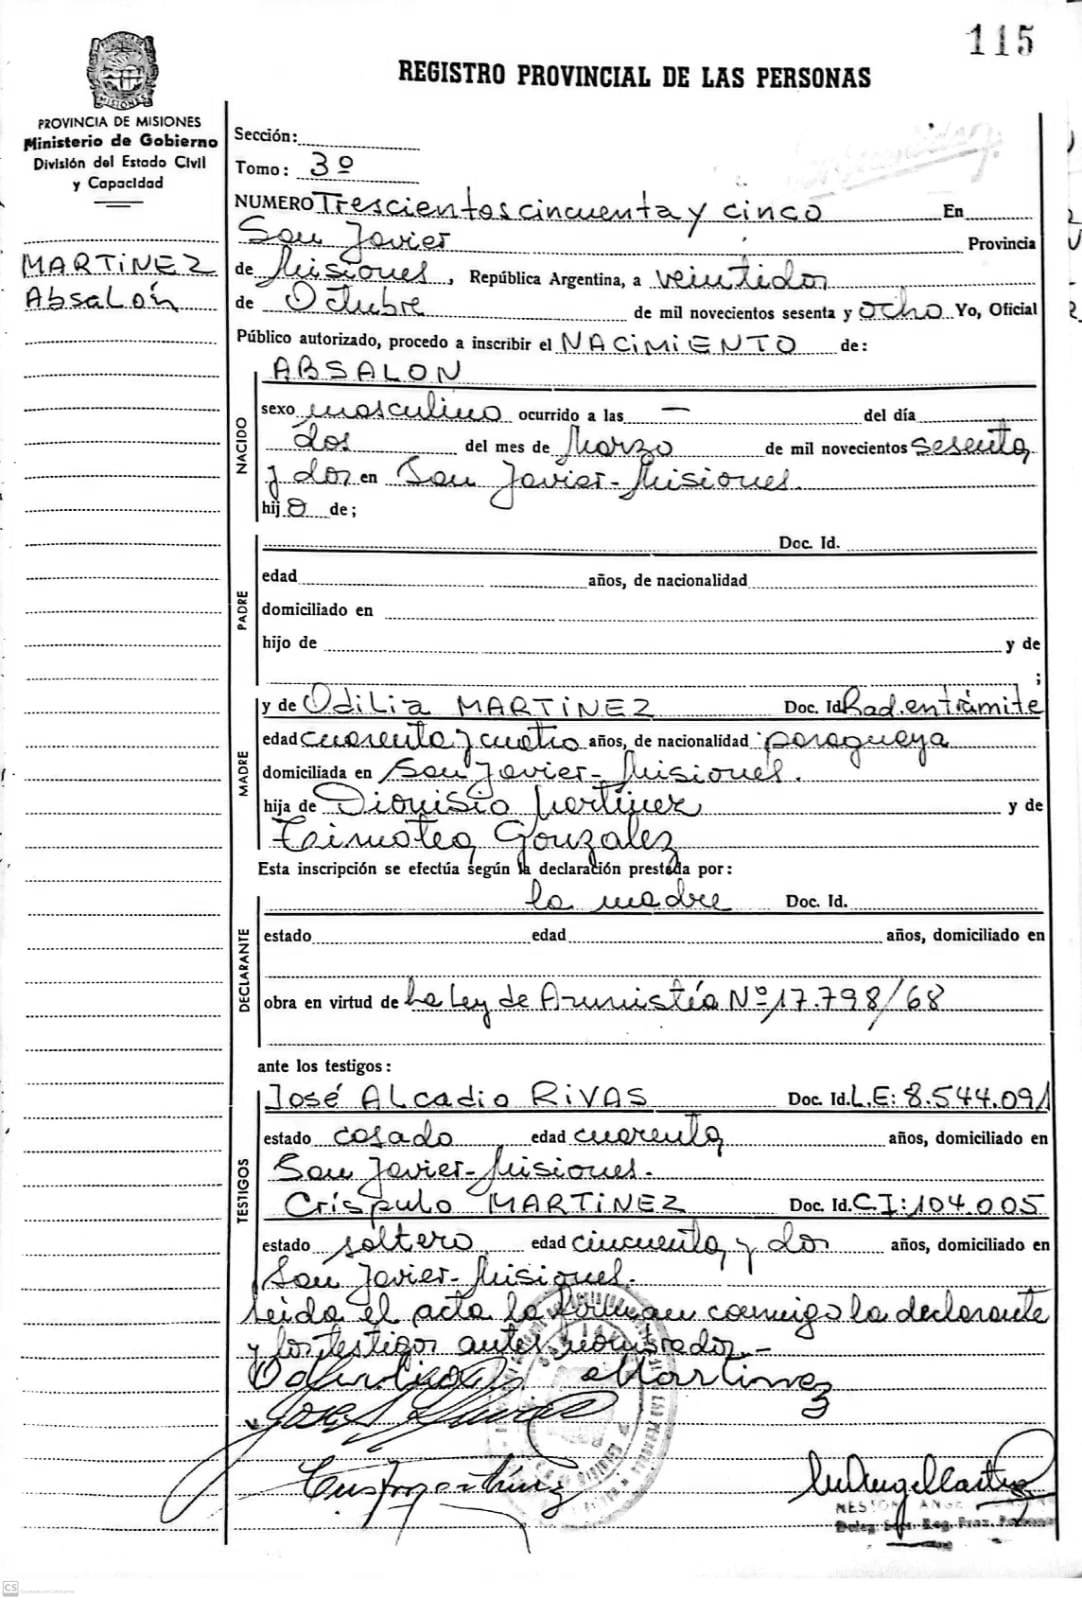 115
REGISTRO PROVINCIAL DE LAS PERSONAS
PROVINCIA DE MISIONES
Ministerio de Gobierno
División del Estado Civil
y Capacidad
MARTiNEZ
AbsaLón
Sección:
Tomo: 3º
NUMERO Trescientos cincuenta y cinco En
San Javier Provincia
de Misiones, República Argentina, a veintidos
de Octubre de mil novecientos sesenta y ocho Yo, Oficial
Público autorizado, procedo a inscribir el NACiMiENTO de:
NACIDO
ABSALON
sexo masculino ocurrido a las — del día
dos del mes de Marzo de mil novecientos sesenta
y dos en San Javier-Misiones.
hijo de;
PADRE
Doc. Id.
edad años, de nacionalidad
domiciliado en
hijo de y de
;
MADRE
y de OdiLia MARTiNEZ Doc. Id. Rad. en trámite
edad cuarenta y cuatro años, de nacionalidad paraguaya
domiciliada en San Javier-Misiones.
hija de Dionisio Martinez y de
Timotea Gonzalez
Esta inscripción se efectúa según la declaración prestada por:
DECLARANTE
la madre Doc. Id.
estado edad años, domiciliado en
obra en virtud de La Ley de Amnistía Nº 17.798/68
ante los testigos:
TESTIGOS
José ALcadio RiVAS Doc. Id. L.E: 8.544.091
estado casado edad cuarenta años, domiciliado en
San Javier-Misiones.
Críspulo MARTiNEZ Doc. Id. CI: 104.005
estado soltero edad cincuenta y dos años, domiciliado en
San Javier-Misiones.
Leida el acta la firman conmigo la declarante
y los testigos antes nombrados.-
Martinez
CS